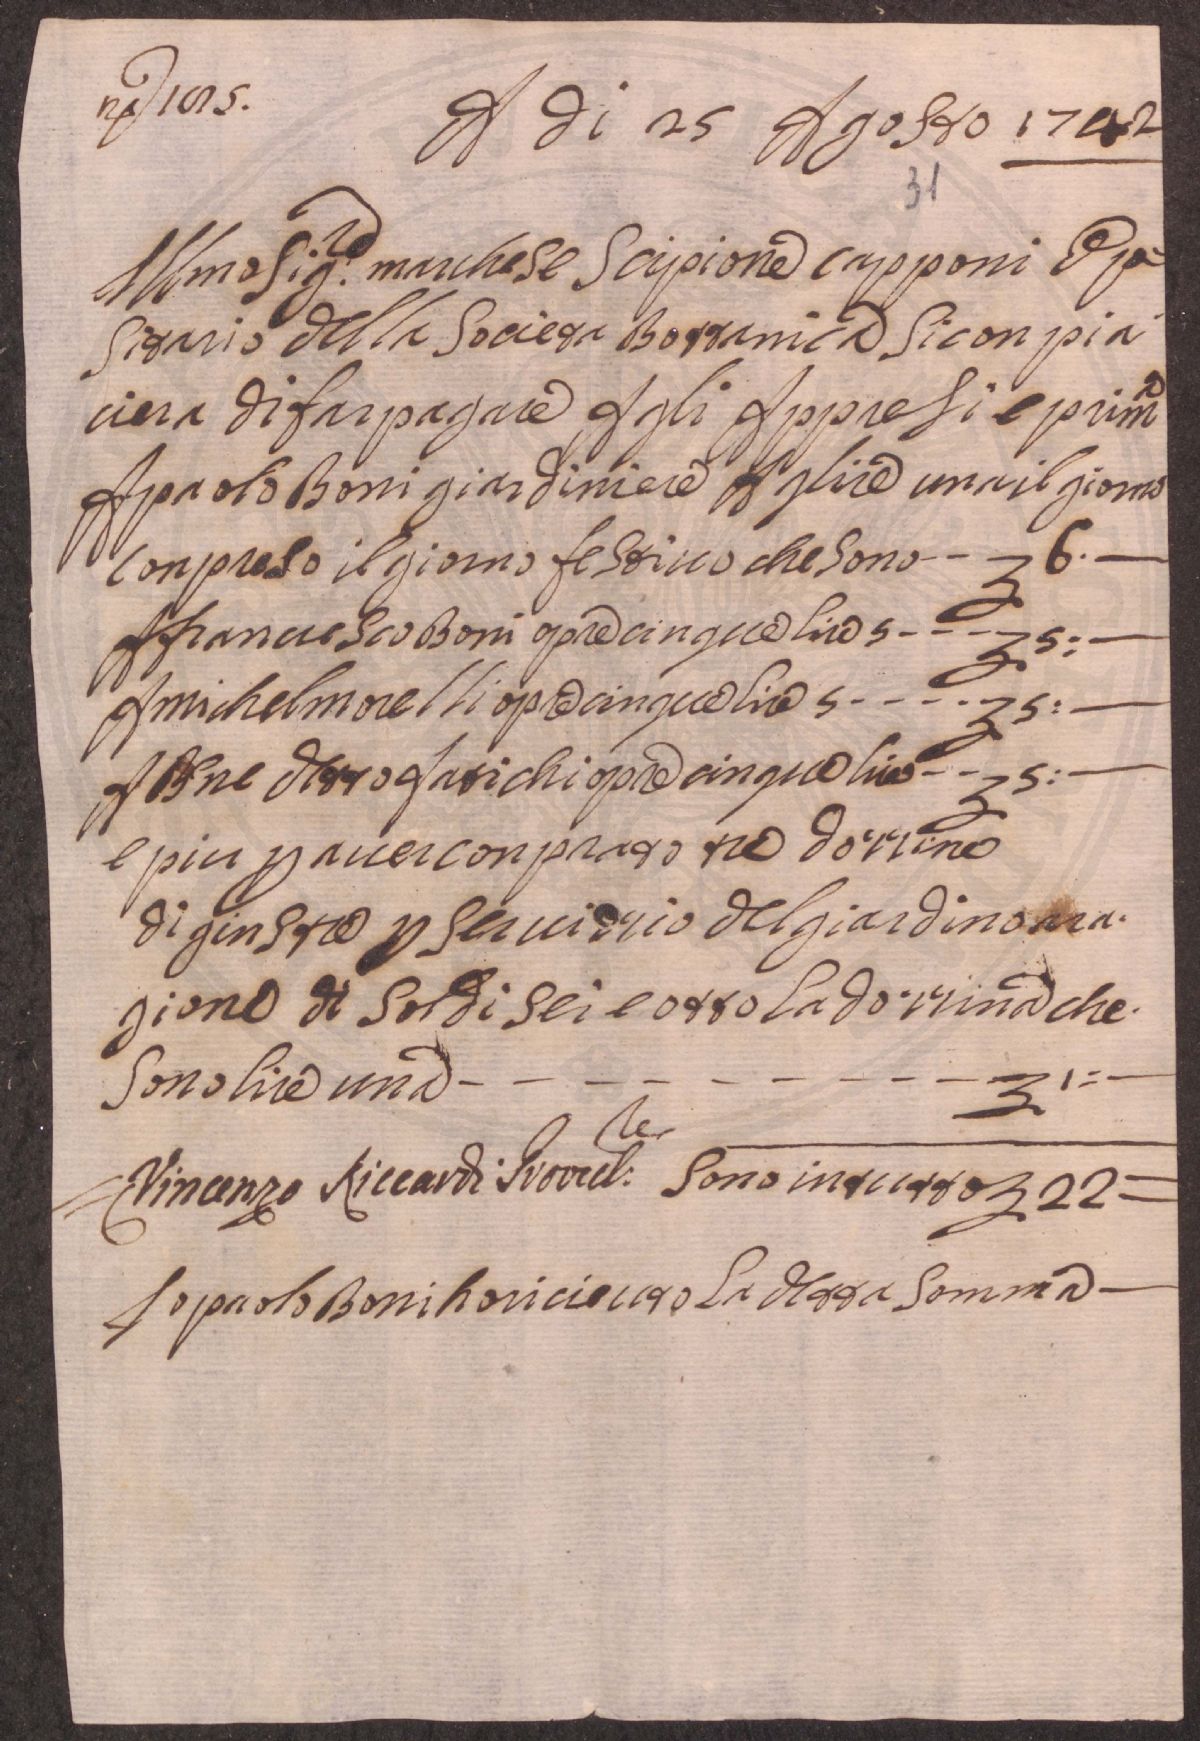 A di 25 Agosto 1742
31
Illmo Sigre marchese Scipione capponi Depo
sitario della Societa Bottanica Si conpia
cera di far pagare Agli Appresi e prima
A paolo Boni giardiniere A lire una il giorno
Conpreso il giorno festiuo che Sono -- 6. —
A francesco Boni opre cinque lire 5 --- 5: —
A michel morelli opre cinque lire 5 ---- 5: —
A Bene detto fatichi opre cinque lire -- 5: —
e piu p auer conprato tre dozzine
di ginstre p Seruizio del giardino a ra
gione di Soldi Sei e otto la dozzina che
Sono lire una - - - - - - - - - 1: —
Vincenzo Riccardi Provre: Sono in tutto 22 =
Io paolo Boni ho riceuto la detta Somma —